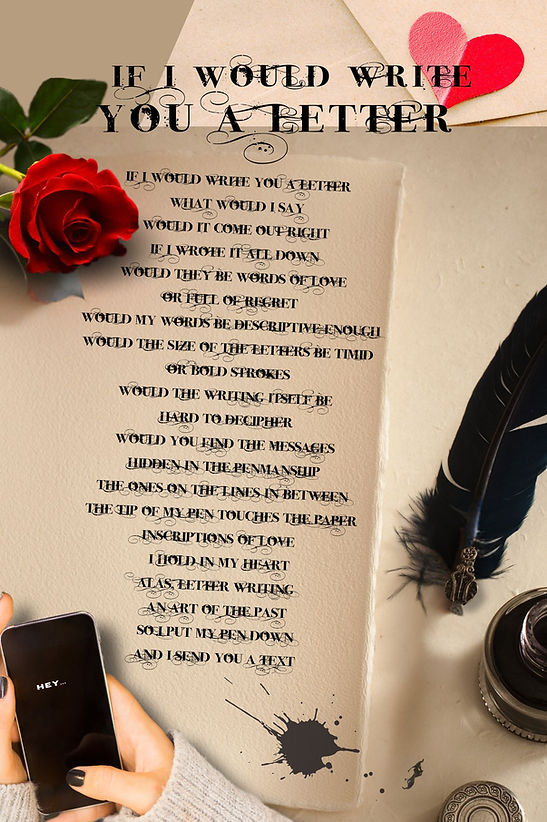 IF I WOULD WRITE
YOU A LETTER
IF I WOULD WRITE YOU A LETTER
WHAT WOULD I SAY
WOULD IT COME OUT RIGHT
IF I WROTE IT ALL DOWN
WOULD THEY BE WORDS OF LOVE
OR FULL OF REGRET
WOULD MY WORDS BE DESCRIPTIVE ENOUGH
WOULD THE SIZE OF THE LETTERS BE TIMID
OR BOLD STROKES
WOULD THE WRITING ITSELF BE
HARD TO DECIPHER
WOULD YOU FIND THE MESSAGES
HIDDEN IN THE PENMANSHIP
THE ONES ON THE LINES IN BETWEEN
THE TIP OF MY PEN TOUCHES THE PAPER
INSCRIPTIONS OF LOVE
I HOLD IN MY HEART
ALAS, LETTER WRITING
AN ART OF THE PAST
SO I PUT MY PEN DOWN
AND I SEND YOU A TEXT
HEY...